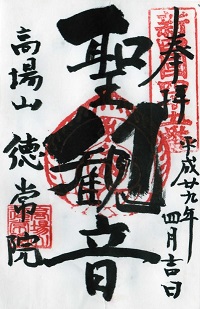 奉拝
平成廿九年四月吉日
聖観音
高場山
徳常院